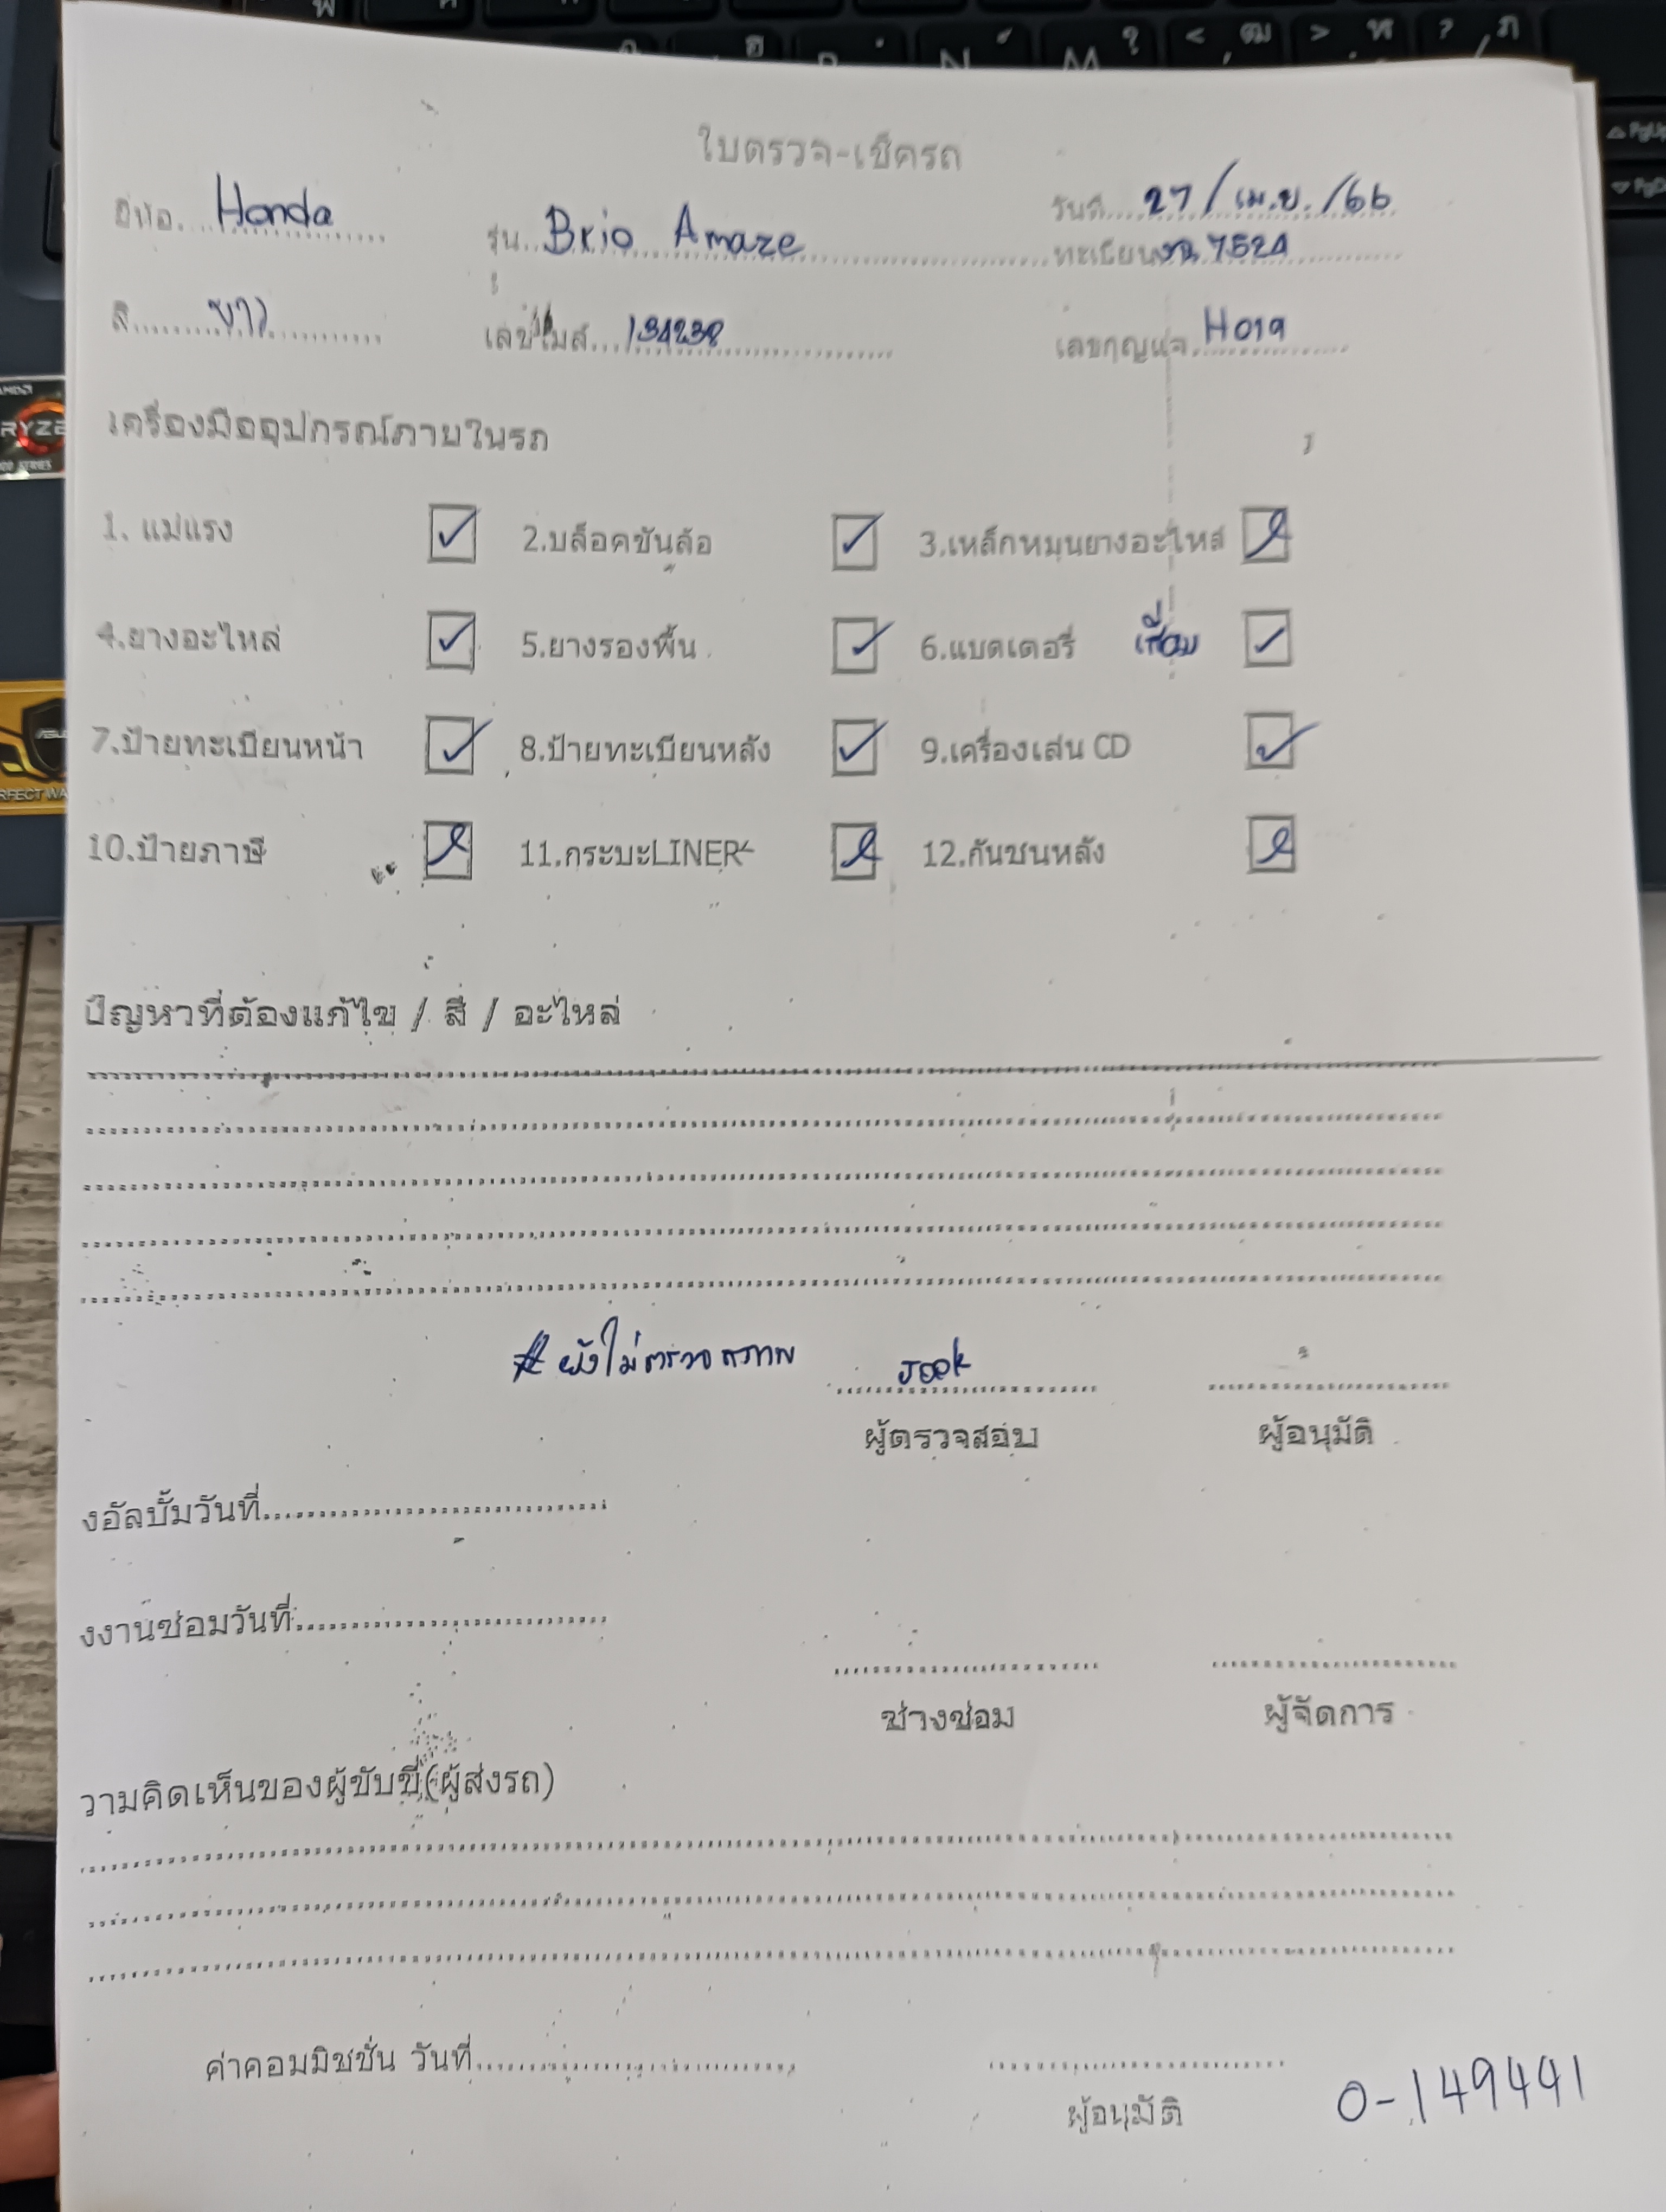 ใบตรวจ-เช็ครถ
ยี่ห้อ Honda รุ่น Brio Amaze วันที่ 27/เม.ย./66
ทะเบียน 7524
สี ขาว เลขไมล์ 134238 เลขกุญแจ H019
เครื่องมืออุปกรณ์ภายในรถ
1. แม่แรง 2.บล็อคขันล้อ 3.เหล็กหมุนยางอะไหล่
4.ยางอะไหล่ 5.ยางรองพื้น 6.แบตเตอรี่ เสื่อม
7.ป้ายทะเบียนหน้า 8.ป้ายทะเบียนหลัง 9.เครื่องเล่น CD
10.ป้ายภาษี 11.กระบะLINER 12.กันชนหลัง
ปัญหาที่ต้องแก้ไข / สี / อะไหล่
# ยังไม่ตรวจสภาพ Jook
ผู้ตรวจสอบ ผู้อนุมัติ
งอัลบั้มวันที่
งงานซ่อมวันที่
ช่างซ่อม ผู้จัดการ
วามคิดเห็นของผู้ขับขี่(ผู้ส่งรถ)
ค่าคอมมิชชั่น วันที่
ผู้อนุมัติ 0-149441
RYZE
PgUp
PgD